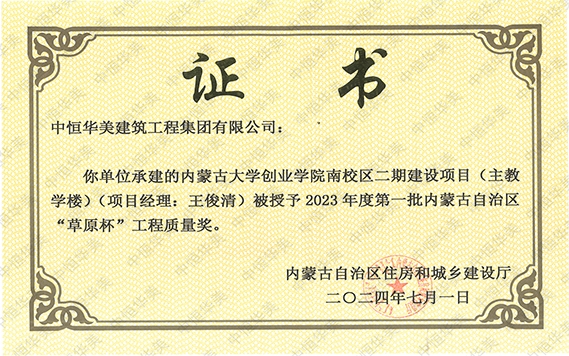 证书
中恒华美建筑工程集团有限公司：
你单位承建的内蒙古大学创业学院南校区二期建设项目（主教
学楼）（项目经理：王俊清）被授予 2023 年度第一批内蒙古自治区
“草原杯”工程质量奖。
内蒙古自治区住房和城乡建设厅
二〇二四年七月一日
中恒华美